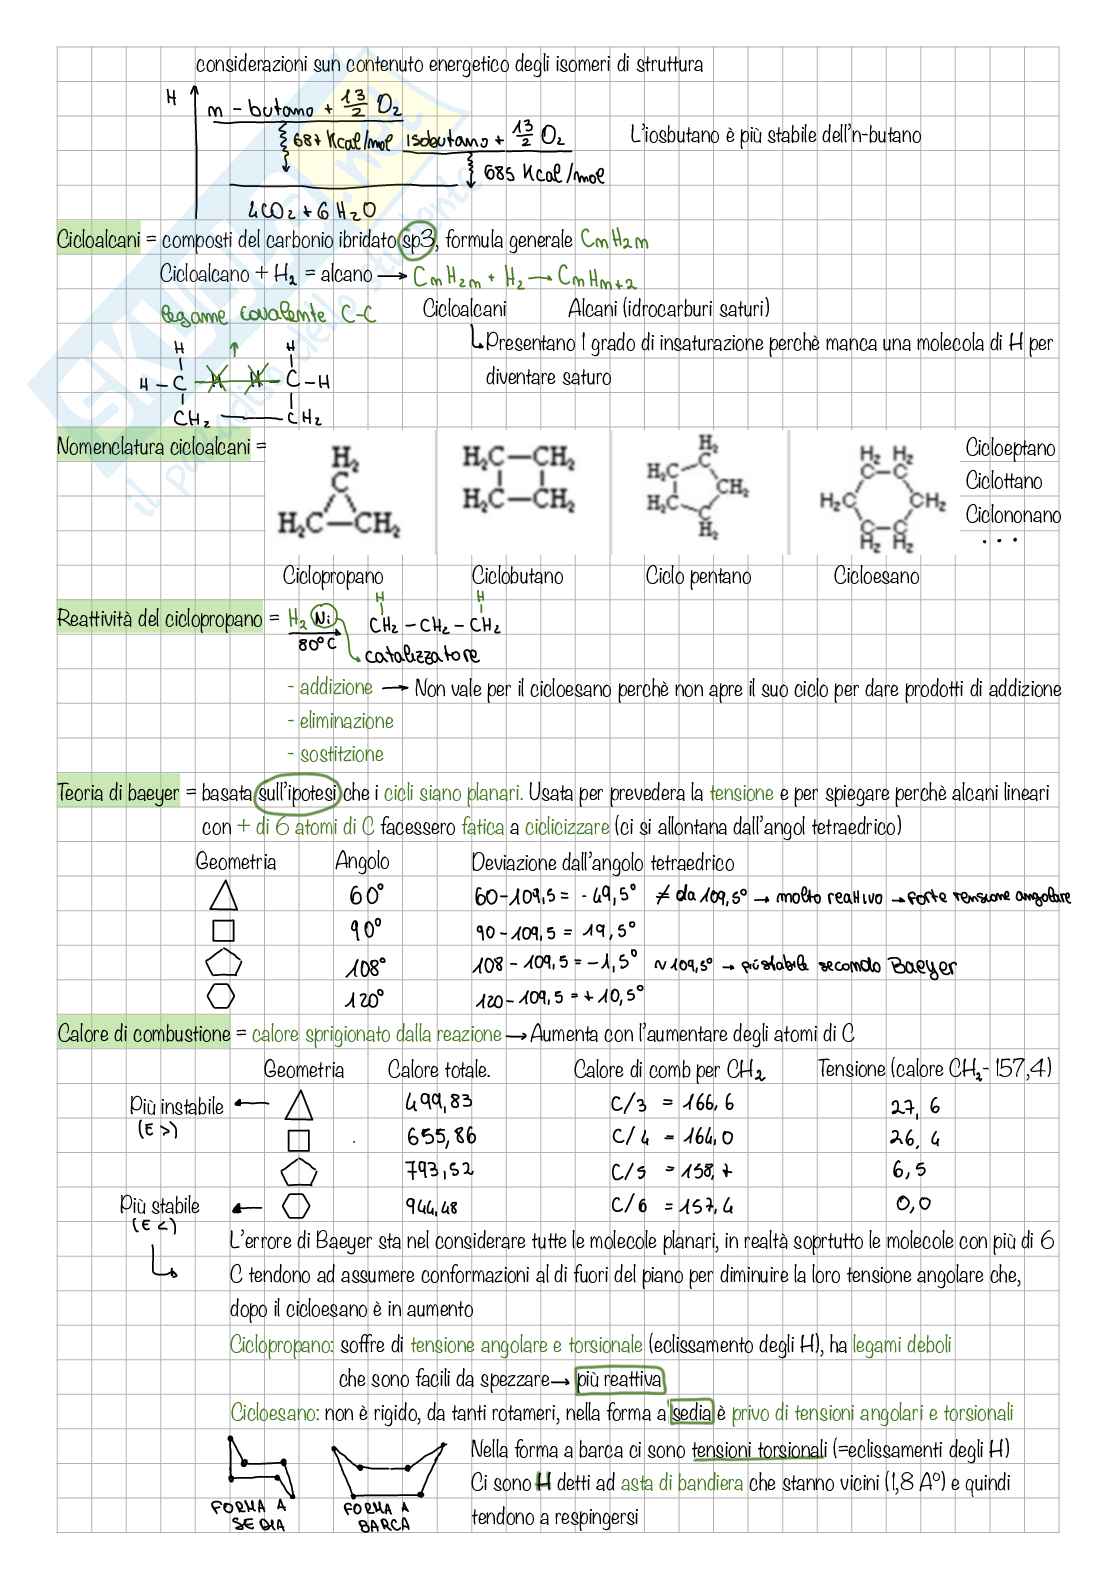 considerazioni sun contenuto energetico degli isomeri di struttura
H
n - butano + 13/2 O2
687 Kcal/mol isobutano + 13/2 O2
L'iosbutano è più stabile dell'n-butano
685 Kcal/mol
4CO2 + 6H2O
Cicloalcani = composti del carbonio ibridato sp3, formula generale CmH2m
Cicloalcano + H2 = alcano → CmH2m + H2 → CmHm+2
legame covalente C-C Cicloalcani Alcani (idrocarburi saturi)
Presentano 1 grado di insaturazione perchè manca una molecola di H per
diventare saturo
H H
H - C H H C - H
CH2 CH2
Nomenclatura cicloalcani =
H2 C H2C—CH2
H2C—CH2 H2C—CH2
H2 C H2C H2C CH2 C H2
H2 H2 C—C H2C CH2 C—C H2 H2
Cicloeptano
Ciclottano
Ciclononano
...
Ciclopropano Ciclobutano Ciclo pentano Cicloesano
Reattività del ciclopropano = H2 Ni
80°C
H H
CH2 - CH2 - CH2
catalizzatore
- addizione → Non vale per il cicloesano perchè non apre il suo ciclo per dare prodotti di addizione
- eliminazione
- sostitzione
Teoria di baeyer = basata sull'ipotesi che i cicli siano planari. Usata per prevedera la tensione e per spiegare perchè alcani lineari
con + di 6 atomi di C facessero fatica a ciclicizzare (ci si allontana dall'angol tetraedrico)
Geometria Angolo Deviazione dall'angolo tetraedrico
60° 60-109,5 = - 49,5° ≠ da 109,5° → molto reattivo → forte tensione angolare
90° 90 - 109,5 = 19,5°
108° 108 - 109,5 = -1,5° ~109,5° → più stabile secondo Baeyer
120° 120 - 109,5 = + 10,5°
Calore di combustione = calore sprigionato dalla reazione → Aumenta con l'aumentare degli atomi di C
Geometria Calore totale. Calore di comb per CH2 Tensione (calore CH2- 157,4)
Più instabile ← 499,83 C/3 = 166,6 27,6
(E >)
655,86 C/4 = 164,0 26,4
793,52 C/5 = 158,7 6,5
Più stabile ← 944,48 C/6 = 157,4 0,0
(E <)
L'errore di Baeyer sta nel considerare tutte le molecole planari, in realtà soprtutto le molecole con più di 6
C tendono ad assumere conformazioni al di fuori del piano per diminuire la loro tensione angolare che,
dopo il cicloesano è in aumento
Ciclopropano: soffre di tensione angolare e torsionale (eclissamento degli H), ha legami deboli
che sono facili da spezzare → più reattiva
Cicloesano: non è rigido, da tanti rotameri, nella forma a sedia è privo di tensioni angolari e torsionali
Nella forma a barca ci sono tensioni torsionali (=eclissamenti degli H)
Ci sono H detti ad asta di bandiera che stanno vicini (1,8 A°) e quindi
tendono a respingersi
FORMA A SEDIA
FORMA A BARCA
SKUOLA.net
il paradiso dello studente